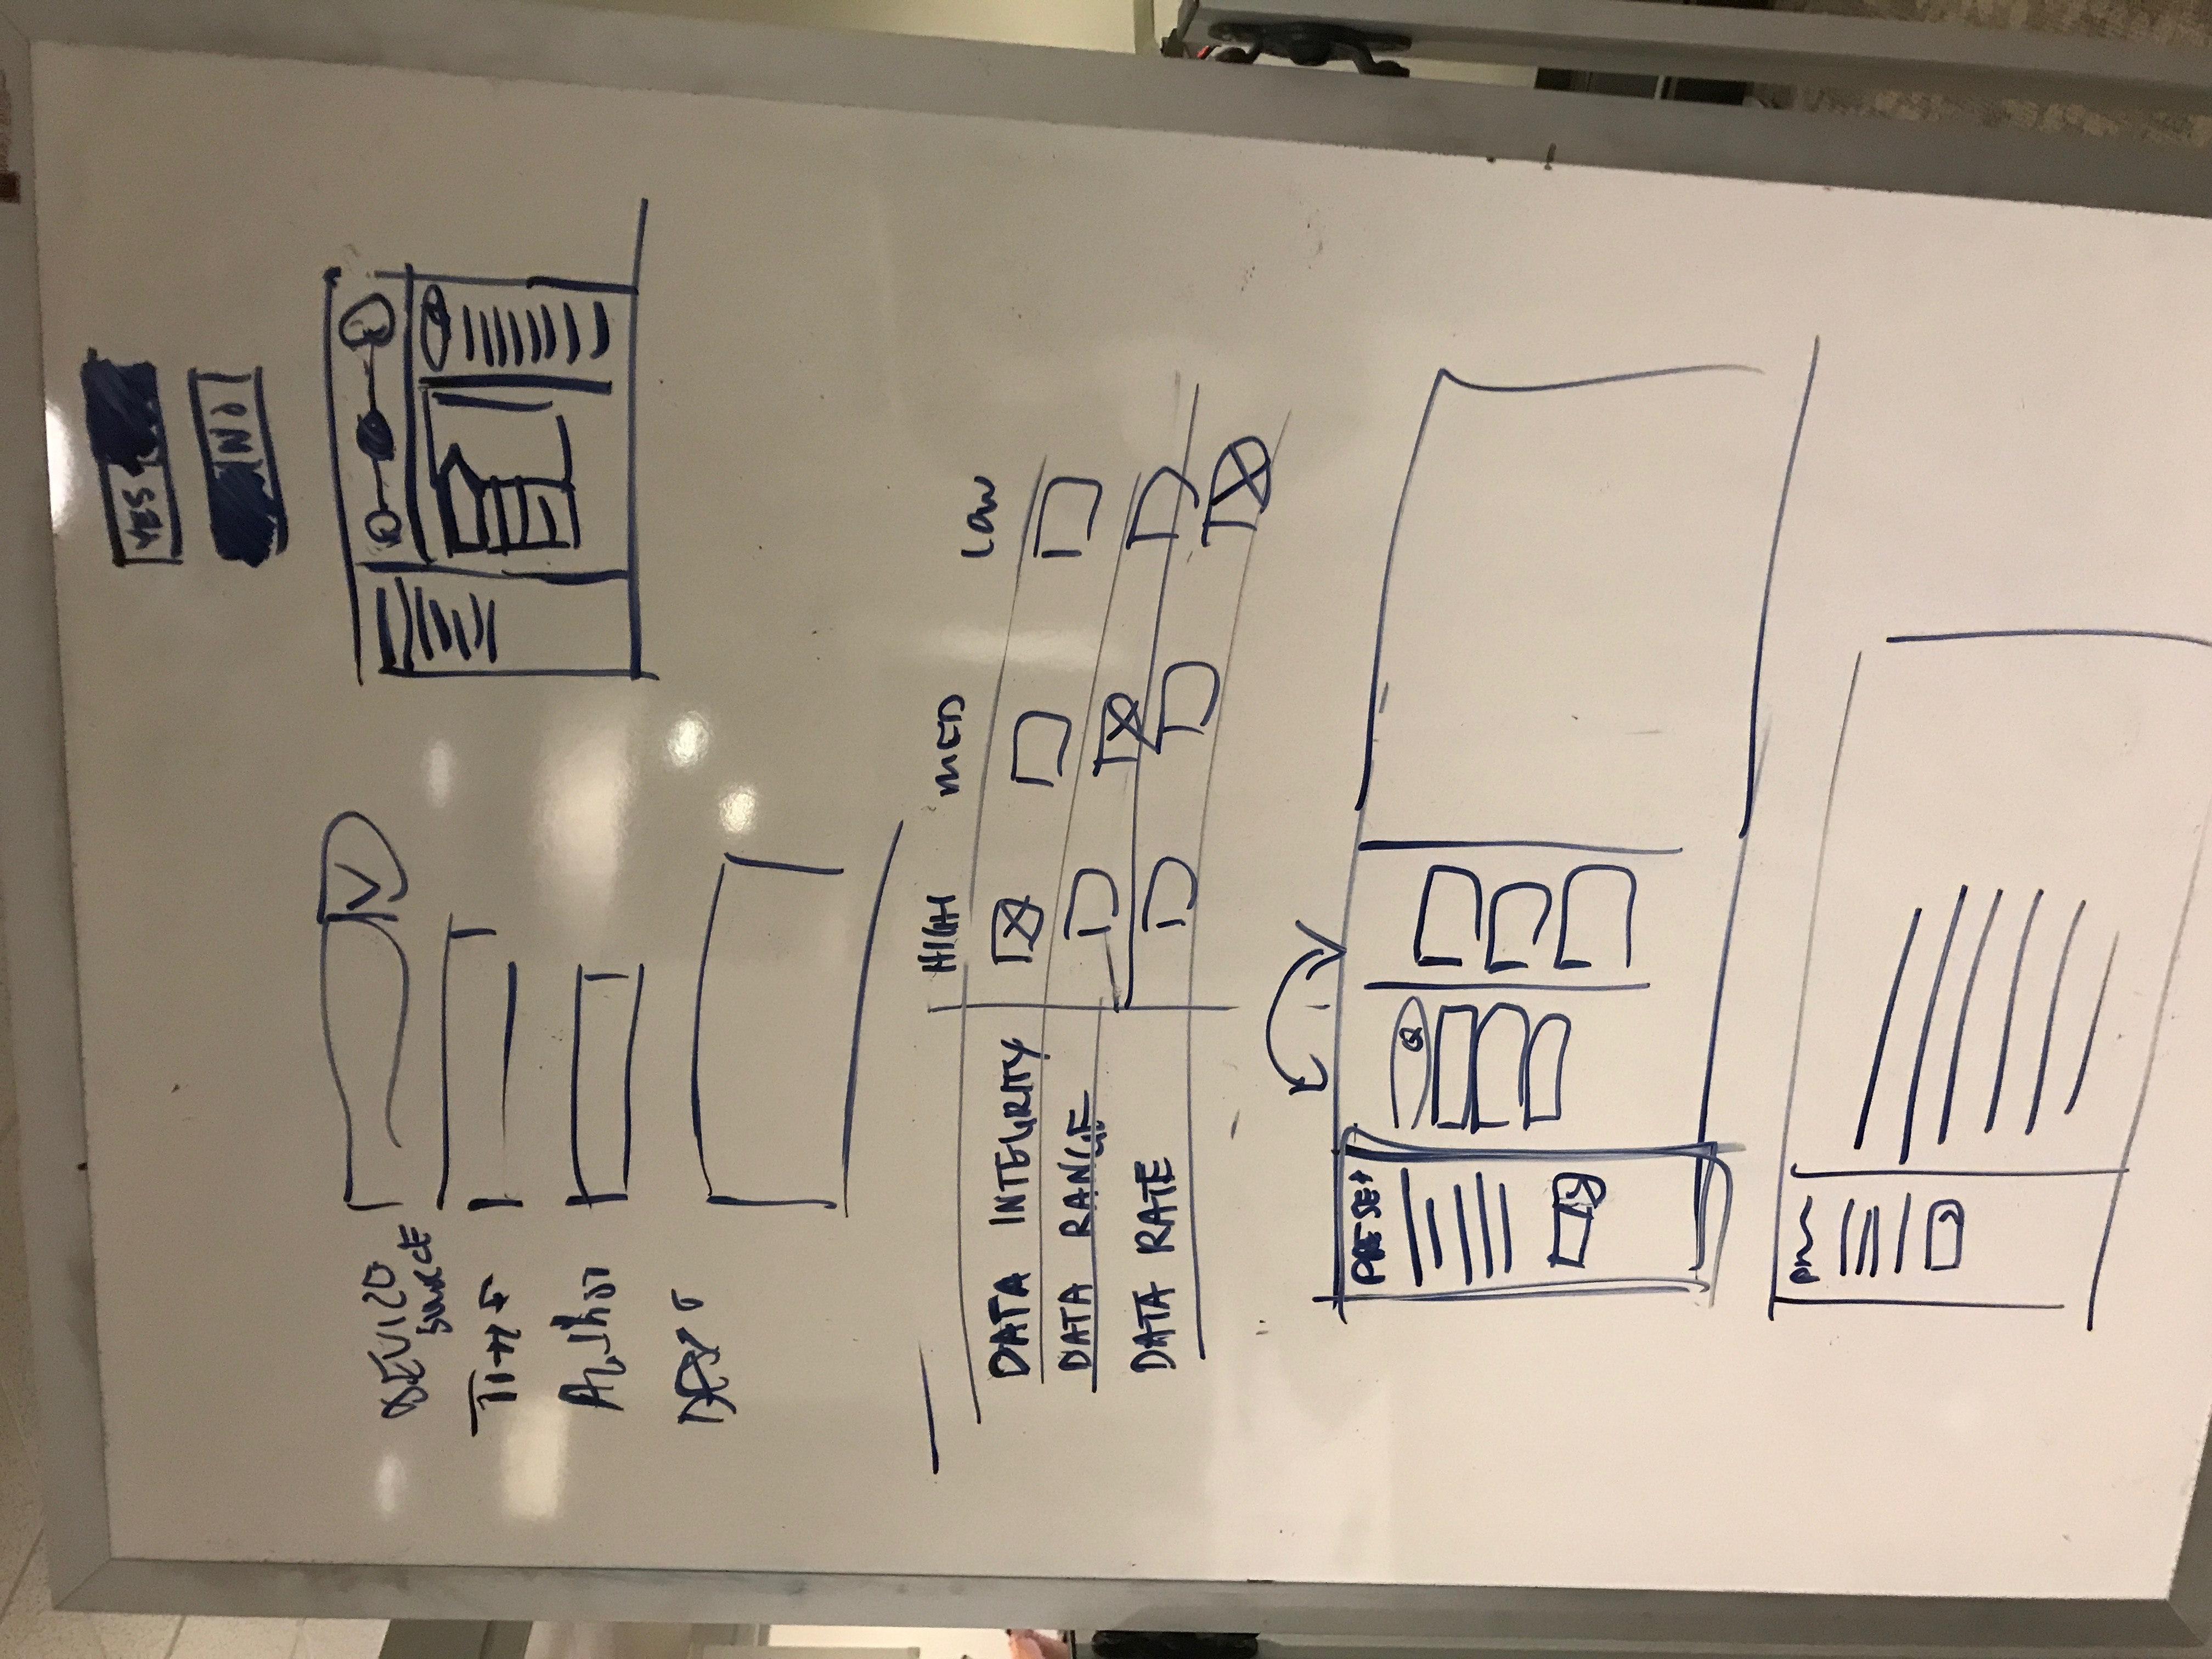 YES
NO
DEVICE
SOURCE
TITLE
Author
HIGH MED LOW
DATA INTEGRITY
DATA RANGE
DATA RATE
PRESET